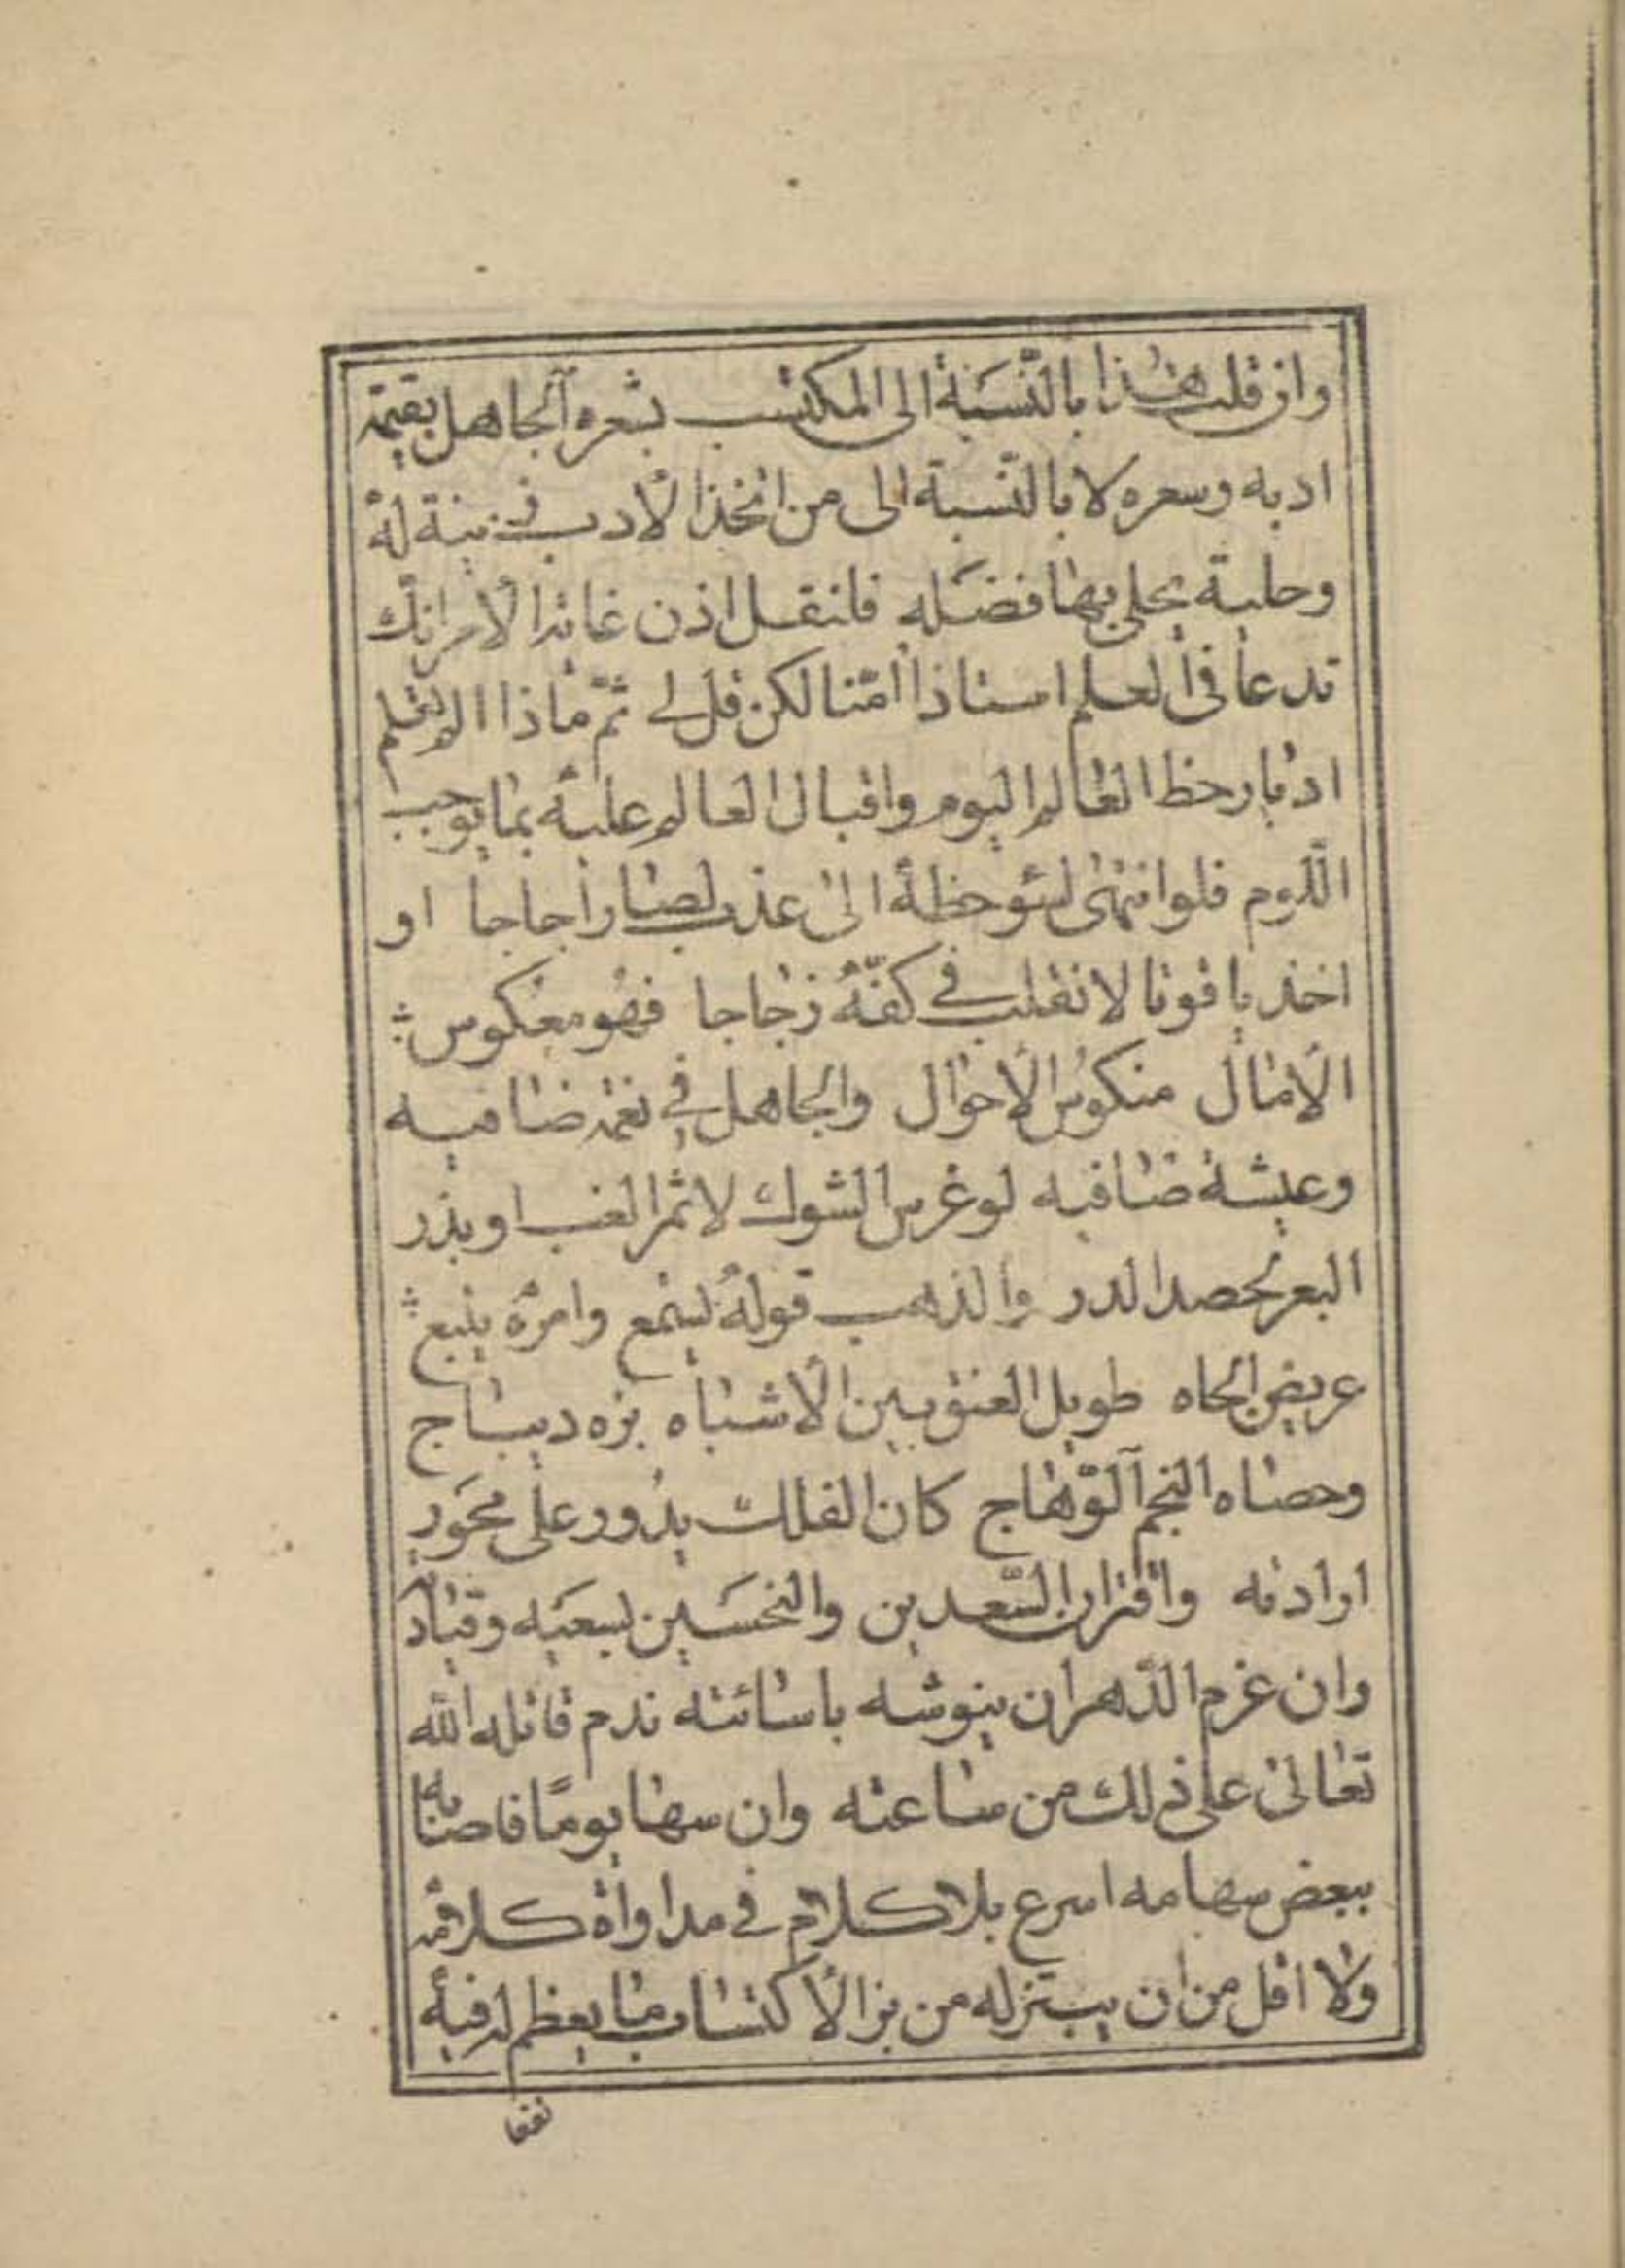 وان قلت هذا بالنسبة الى المكتسب بشعره الجاهل بقيمة
ادبه وسعره لا بالنسبة الى من اتخذ الأدب زينة له
وحلية يحلى بها فضله فانقل اذن غائد الأمر انك
تدعا فى العلم استاذا امنا لكن قل لى ثم ماذا الم تعلم
ادبار حظ العالم اليوم واقبال العالم عليه بما يوجب
اللوم فلو انتهى لسؤ حظه الى عذب لصار اجاجا او
اخذ ياقوتا لانقلب فى كفه زجاجا فهو معكوس
الأمال منكوس الأحوال والجاهل فى نعمة ضافيه
وعيشة صافيه لو غرس الشوك لاثمر العنب او بذر
البعر لحصد الدر والذهب قوله يسمع وامره يتبع
عريض الجاه طويل العنق بين الأشباه بزه ديباج
وحصاه النجم الوهاج كان الفلك يدور على محور
ارادته واقتران السعدين والنحسين لسعيه وقياده
وان غرم الدهر ان ينوشه باسائته ندم قاتله الله
تعالى على ذلك من ساعته وان سها يوما فاصابه
ببعض سهامه اسرع بلا كلام فى مداواة كلامه
ولا اقل من ان يبتز له من بز الأكتساب ما يعظم له فيه